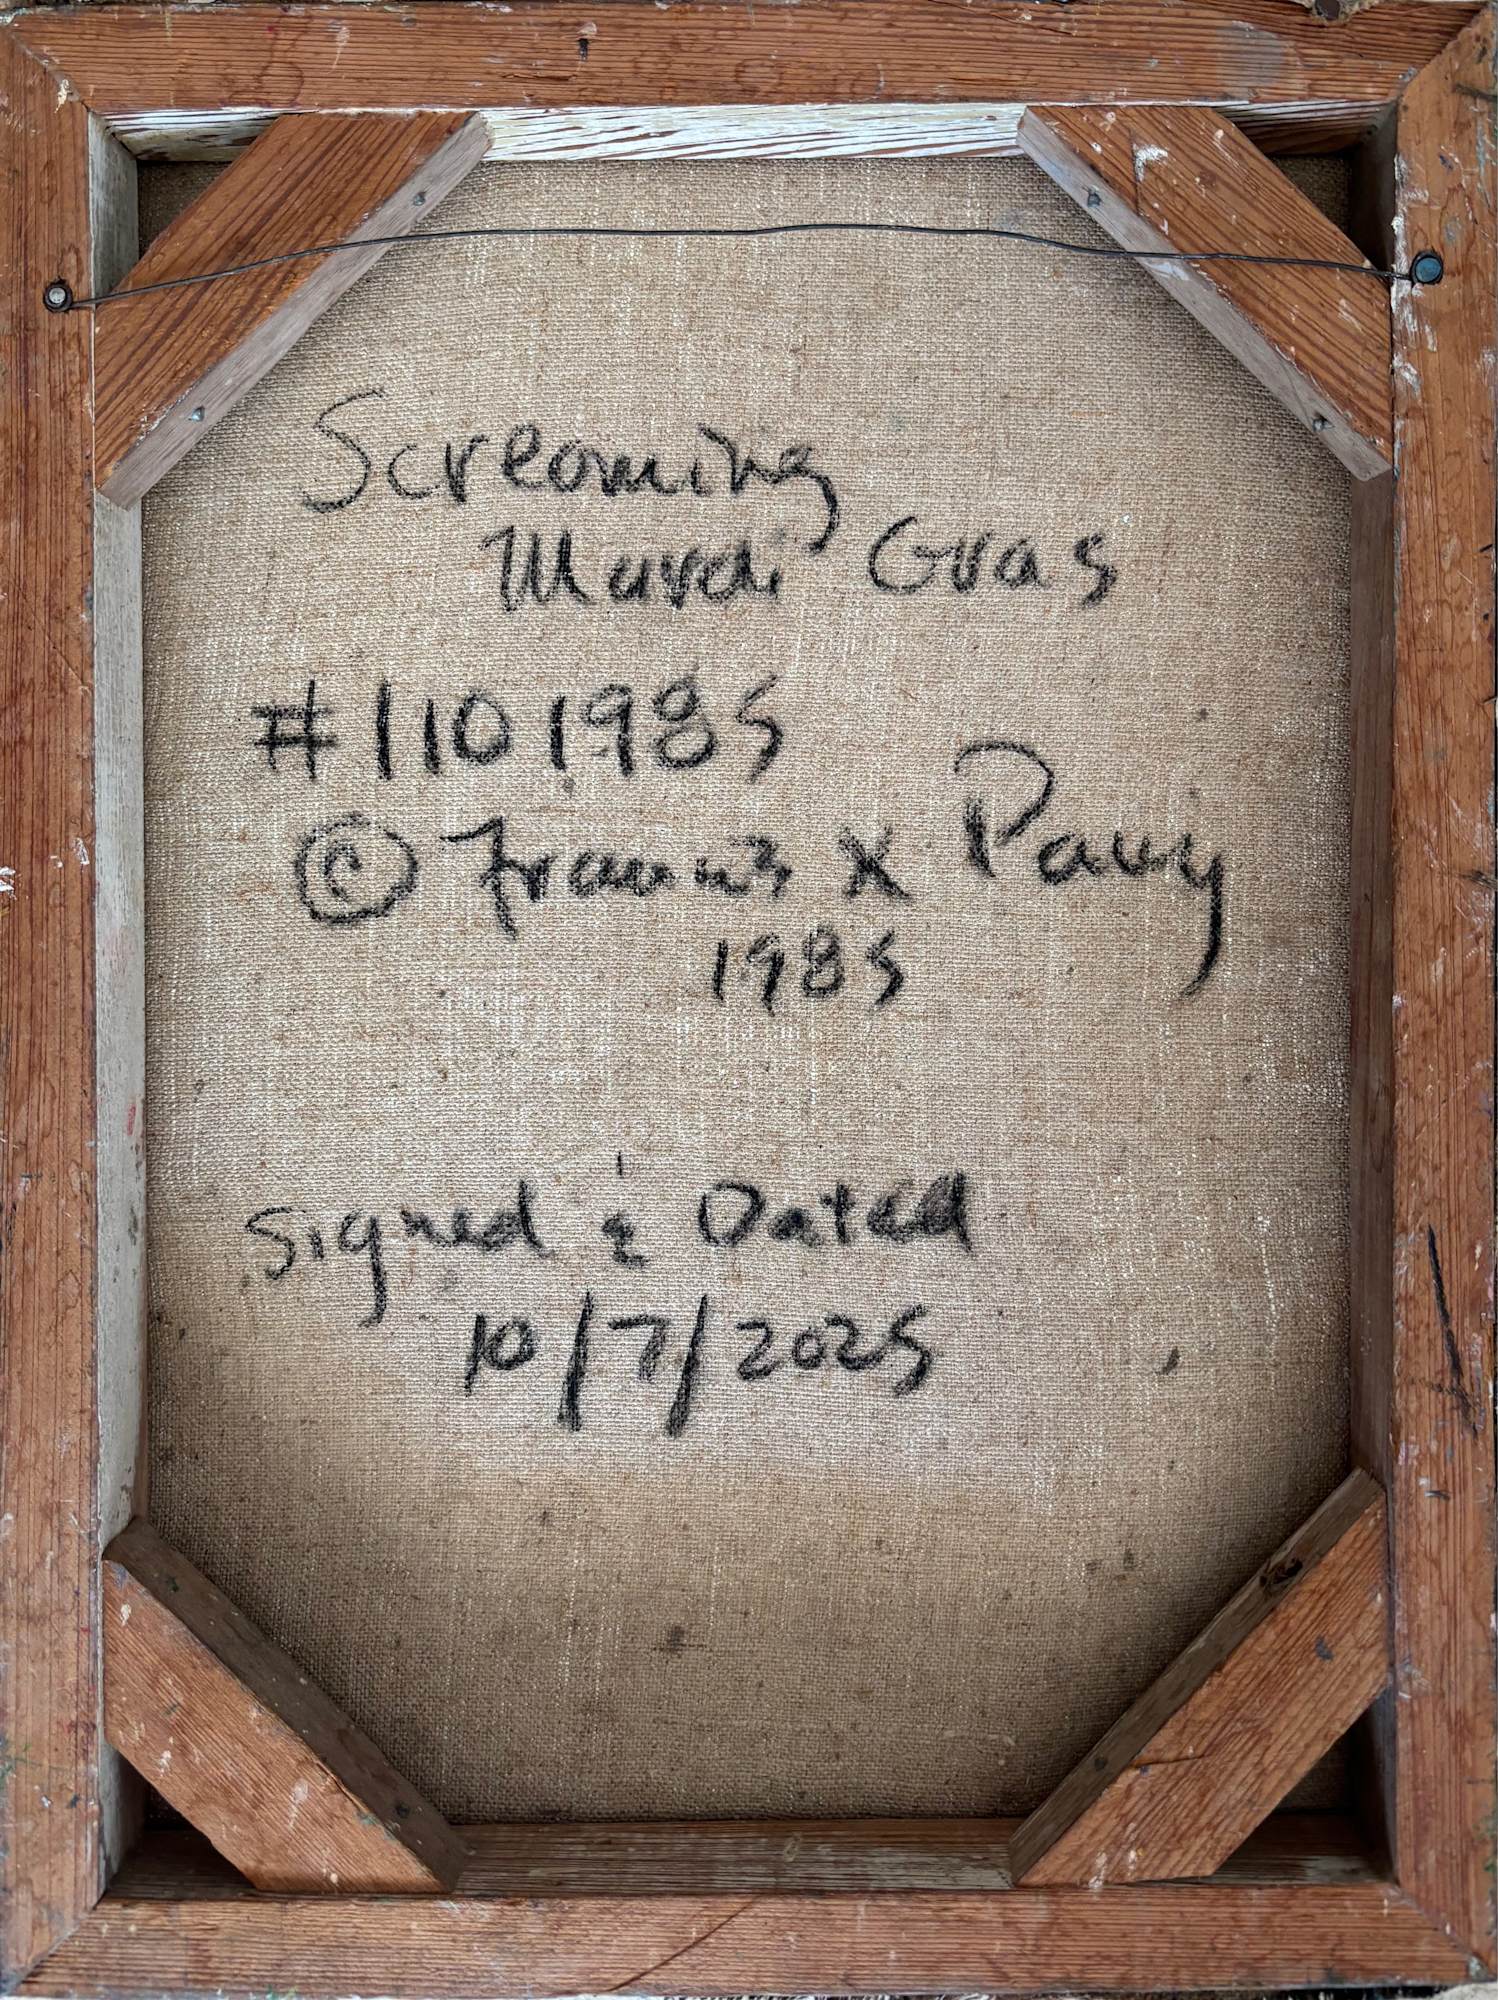 Screaming
Mardi Gras
#1101985
© Francis X Pavy
1985
Signed & Dated
10/7/2025